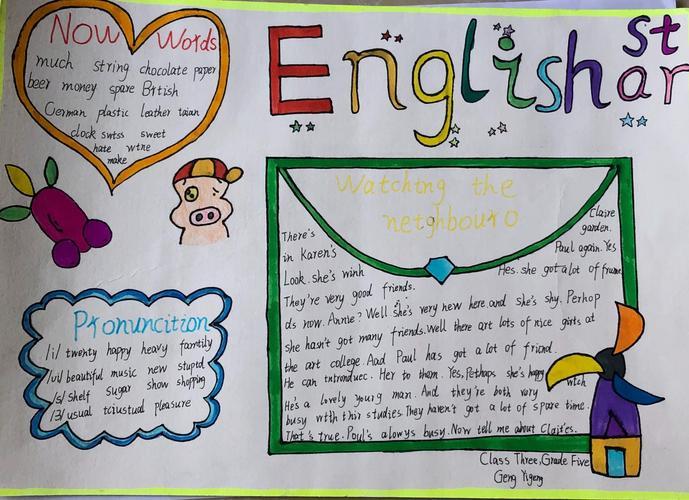 Now Words
much string chocolate paper
beer money spare British
German plastic leather taian
clock swtss sweet
hate wtne
make
English st
ar
Watching the
neighbouro
There's
in Karen's
Look. she's winh
They're very good friends.
Claire
garden.
Paul again. Yes
Hes. she got a lot of
They're very good friends.
ds now. Annie? Well she's very new here. and she's shy. Perhop
she hasn't got many friends. Well there art lots of nice girts at
the art college. Aad Paul has got a lot of friend.
He can introduec. Her to tham. Yes, Perhaps she's happy witch
He's a lovely young man. And they're both very
busy wtth thir studies. They haven't got a lot of spare time.
That's true. Poul's alowys busy. Now tell me about Clajr'es.
Pronuncition
/i/ twenty happy heavy famtily
/ui/ beautiful music new stupid
/s/ shelf sugar show shopping
/3/ usual tciustual pleasure
Class Three, Grade Five
Geng Yigeng